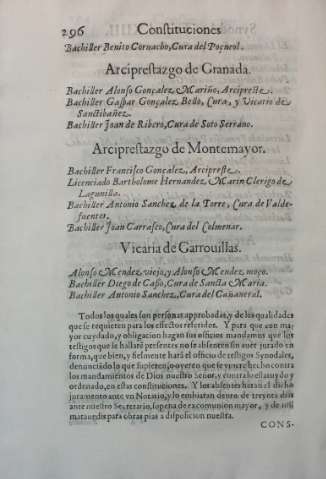 296 Constituciones
Bachiller Benito Cornacho, Cura del Poçuelo.
Arciprestazgo de Granada.
Bachiller Alonso Gonçalez Mariño, Arcipreste.
Bachiller Gaspar Gonçalez Bello, Cura, y Vicario de
Sanctibañez.
Bachiller Joan de Ribero, Cura de Soto Serrano.
Arciprestazgo de Montemayor.
Bachiller Francisco Gonçalez, Arcipreste.
Licenciado Bartholome Hernandez Marin Clerigo de
Lagunilla.
Bachiller Antonio Sanchez de la Torre, Cura de Valde-
fuentes.
Bachiller Joan Carrasco, Cura del Colmenar.
Vicaria de Garrouillas.
Alonso Mendez viejo, y Alonso Mendez, moço.
Bachiller Diego de Caso, Cura de Sancta Maria.
Bachiller Antonio Sanchez, Cura del Cañaueral.
Todos los quales son personas approbadas, y de las qualidades
que se requieren para los effectos referidos. Y para que con ma-
yor cuydado, y obligacion hagan sus officios mandamos que los
testigos que se hallarẽ presentes no se absenten sin auer jurado en
forma, que bien, y fielmente harã el officio de testigos Synodales,
denunciãdo lo que supieren, o oyeren que se vuiere hecho contra
los mandamientos de Dios nuestro Señor, y contra lo estatuydo y
ordenado, en estas constituciones. Y los absentes harãn el dicho
juramento ante vn Notario, y lo embiaran dentro de treynta dias
ante nuestro Secretario, so pena de excomunion mayor, y de
marauedis para obras pias a disposicion nuestra.
CONS-